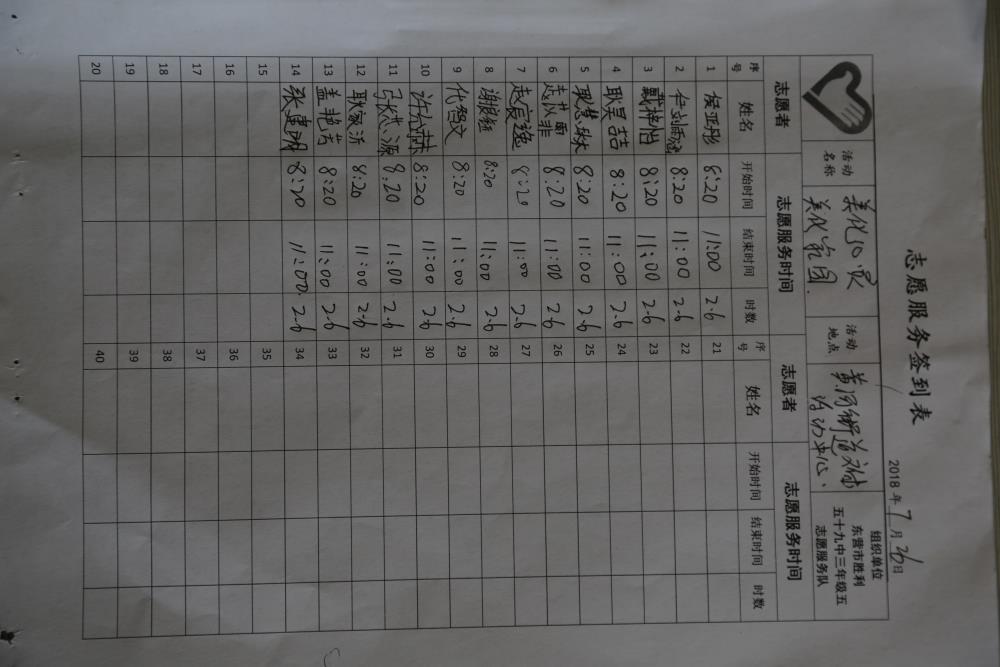 志愿服务签到表
2018年7月26日
活动名称 美化心灵 美化家园. 活动地点 黄河街道文体活动中心、 组织单位 东营市胜利五十九中三年级五 志愿服务队
志愿者 志愿服务时间 志愿者 志愿服务时间
序号 姓名 开始时间 结束时间 时数 序号 姓名 开始时间 结束时间 时数
1 侯亚彤 8:20 11:00 2.6 21
2 8:20 11:00 2.6 22
3 戴梓怡 8:20 11:00 2.6 23
4 耿昊喆 8:20 11:00 2.6 24
5 8:20 11:00 2.6 25
6 8:20 11:00 2.6 26
7 赵宸逸 8:20 11:00 2.6 27
8 8:20 11:00 2.6 28
9 8:20 11:00 2.6 29
10 8:20 11:00 2.6 30
11 8:20 11:00 2.6 31
12 耿家沂 8:20 11:00 2.6 32
13 盖艳芳 8:20 11:00 2.6 33
14 8:20 11:00. 2.6 34
15 35
16 36
17 37
18 38
19 39
20 40